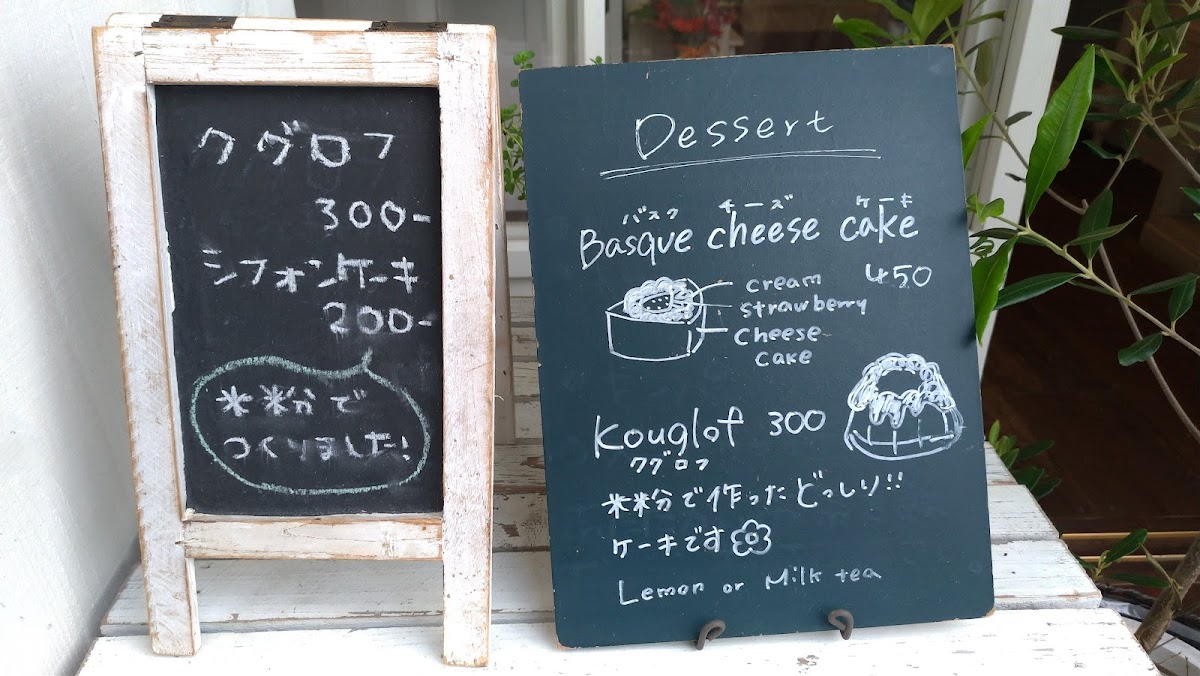 クグロフ
300-
シフォンケーキ
200-
米粉で
つくりました!
Dessert
バスク チーズ ケーキ
Basque cheese cake
450
cream
strawberry
cheese
cake
Kouglof 300
クグロフ
米粉で作ったどっしり!!
ケーキです
Lemon or Milk tea